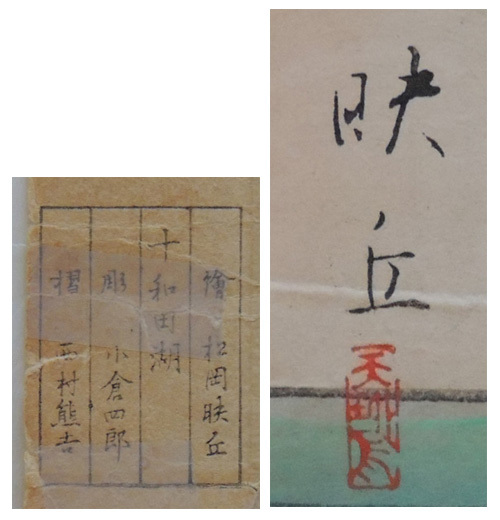 繪 松岡映丘
十和田湖
彫 小倉四郎
摺 西村熊吉
映丘